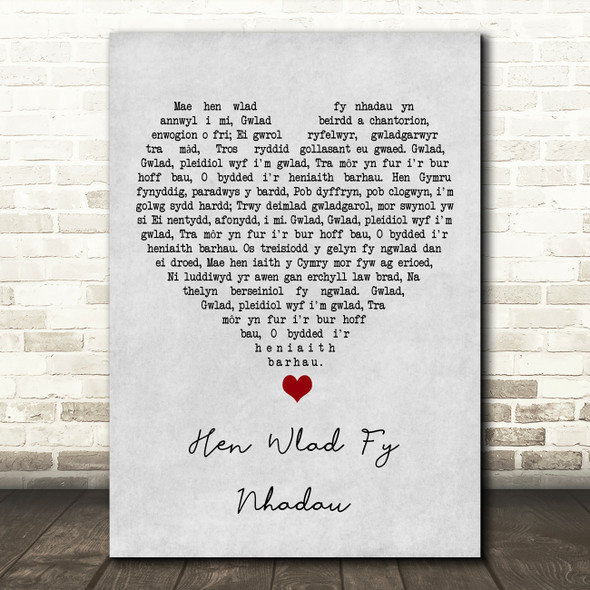 Mae hen wlad fy nhadau yn
annwyl i mi, Gwlad beirdd a chantorion,
enwogion o fri; Ei gwrol ryfelwyr, gwladgarwyr
tra mâd, Tros ryddid gollasant eu gwaed. Gwlad,
Gwlad, pleidiol wyf i'm gwlad, Tra môr yn fur i'r bur
hoff bau, O bydded i'r heniaith barhau. Hen Gymru
fynyddig, paradwys y bardd, Pob dyffryn, pob clogwyn, i'm
golwg sydd hardd; Trwy deimlad gwladgarol, mor swynol yw
si Ei nentydd, afonydd, i mi. Gwlad, Gwlad, pleidiol wyf i'm
gwlad, Tra môr yn fur i'r bur hoff bau, O bydded i'r
heniaith barhau. Os treisiodd y gelyn fy ngwlad dan
ei droed, Mae hen iaith y Cymry mor fyw ag erioed,
Ni luddiwyd yr awen gan erchyll law brad, Na
thelyn berseiniol fy ngwlad. Gwlad,
Gwlad, pleidiol wyf i'm gwlad, Tra
môr yn fur i'r bur hoff
bau, O bydded i'r
heniaith
barhau.
Hen Wlad Fy
Nhadau